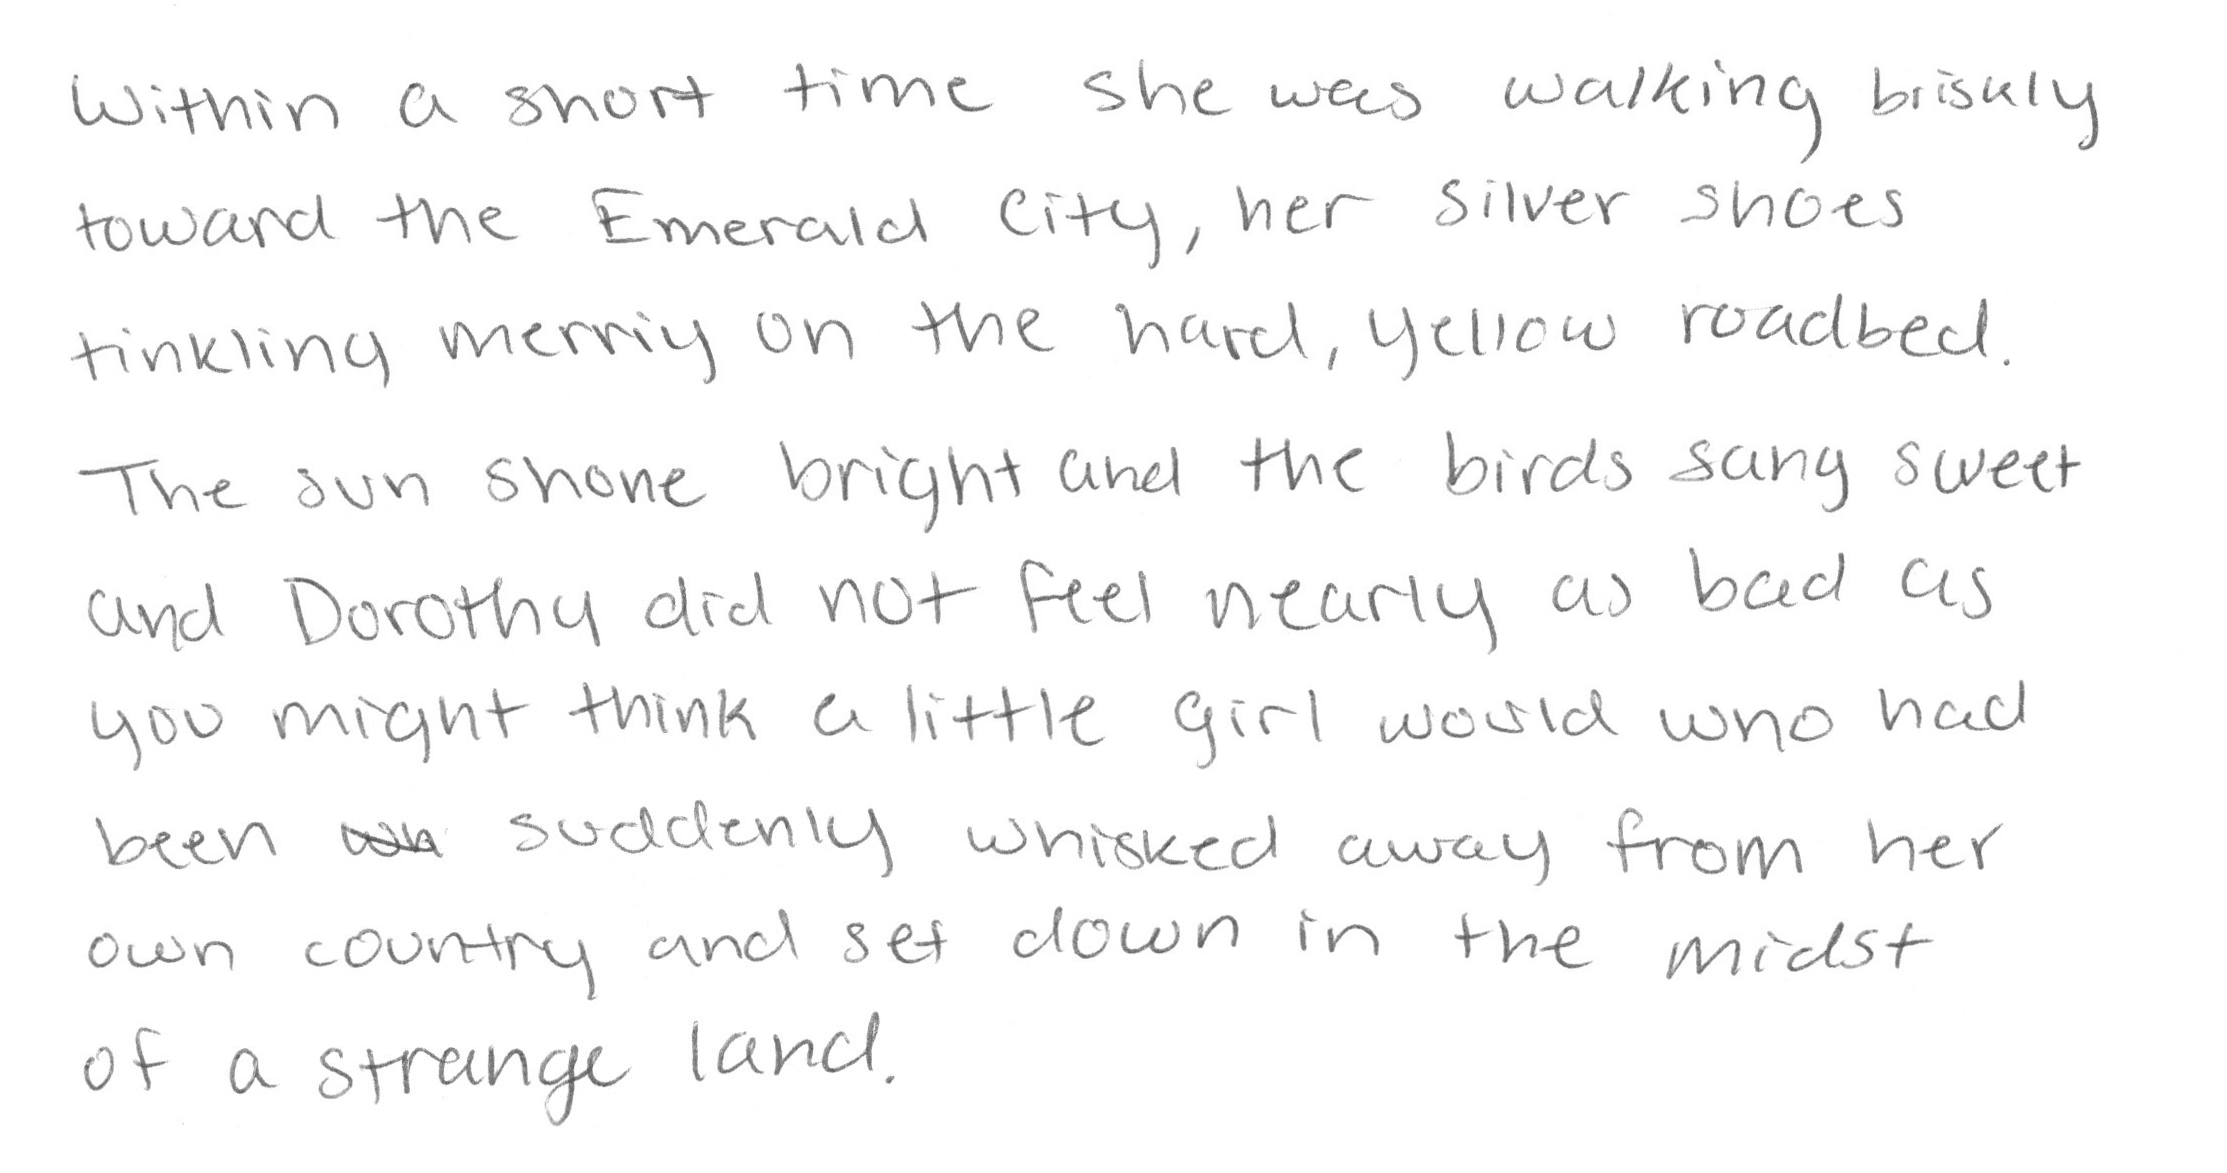 Within a short time she was walking briskly
toward the Emerald City, her silver shoes
tinkling merriy on the hard, yellow roadbed.
The sun shone bright and the birds sang sweet
and Dorothy did not feel nearly as bad as
you might think a little girl would who had
been suddenly whisked away from her
own country and set down in the midst
of a strange land.